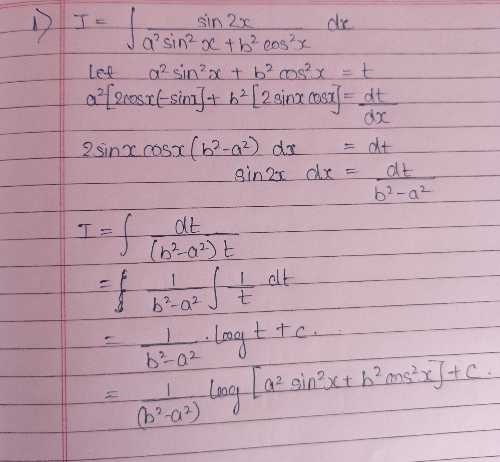 1) I = ∫ sin 2x / (a² sin² x + b² cos² x) dx
Let a² sin² x + b² cos² x = t
a² [2cosx(-sinx] + b² [2 sinx cosx] = dt/dx
2 sinx cosx (b² - a²) dx = dt
sin 2x dx = dt / (b² - a²)
I = ∫ dt / (b² - a²) t
= 1 / (b² - a²) ∫ 1/t dt
= 1 / (b² - a²) . log t + c.
= 1 / (b² - a²) log [a² sin² x + b² cos² x] + c.